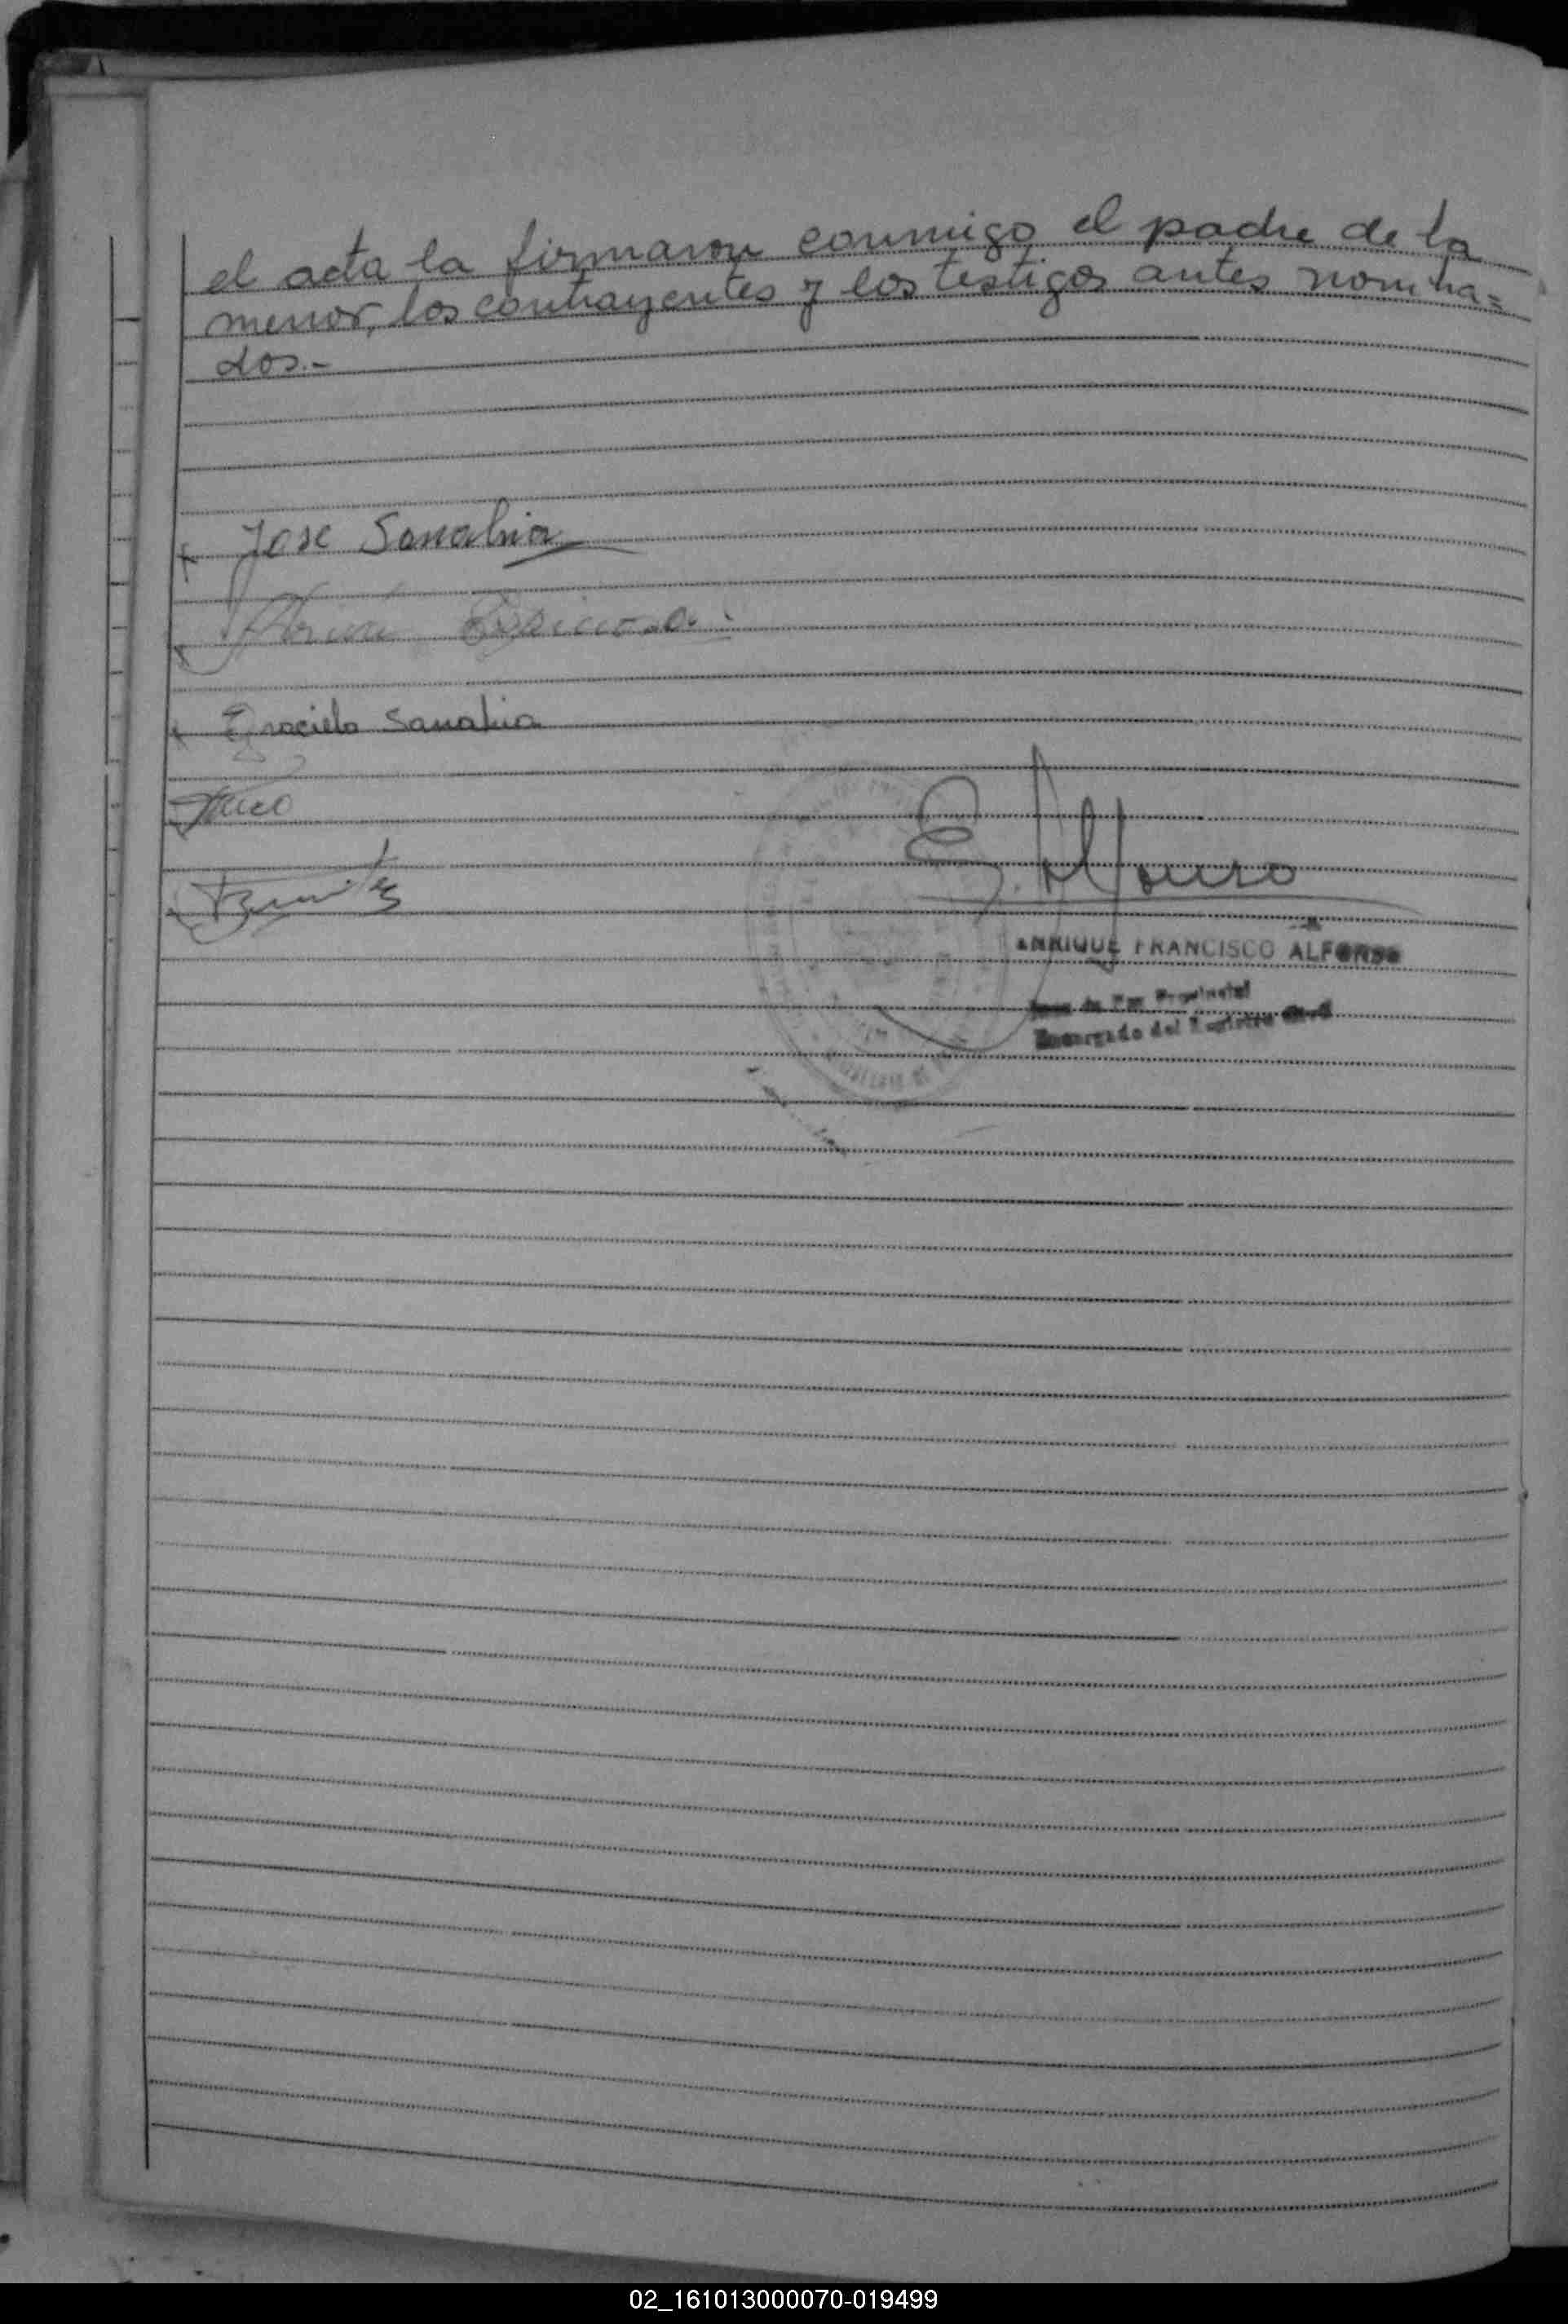 el acta la firmaron conmigo el padre de la
menor, los contrayentes y los testigos antes nomina=
dos.-
Jose Sanabria
Espinosa
Graciela Sanabria
Benitez
E. Alfonso
ENRIQUE FRANCISCO ALFONSO
Juez de Paz Provincial
Encargado del Registro Civil
02_161013000070-019499